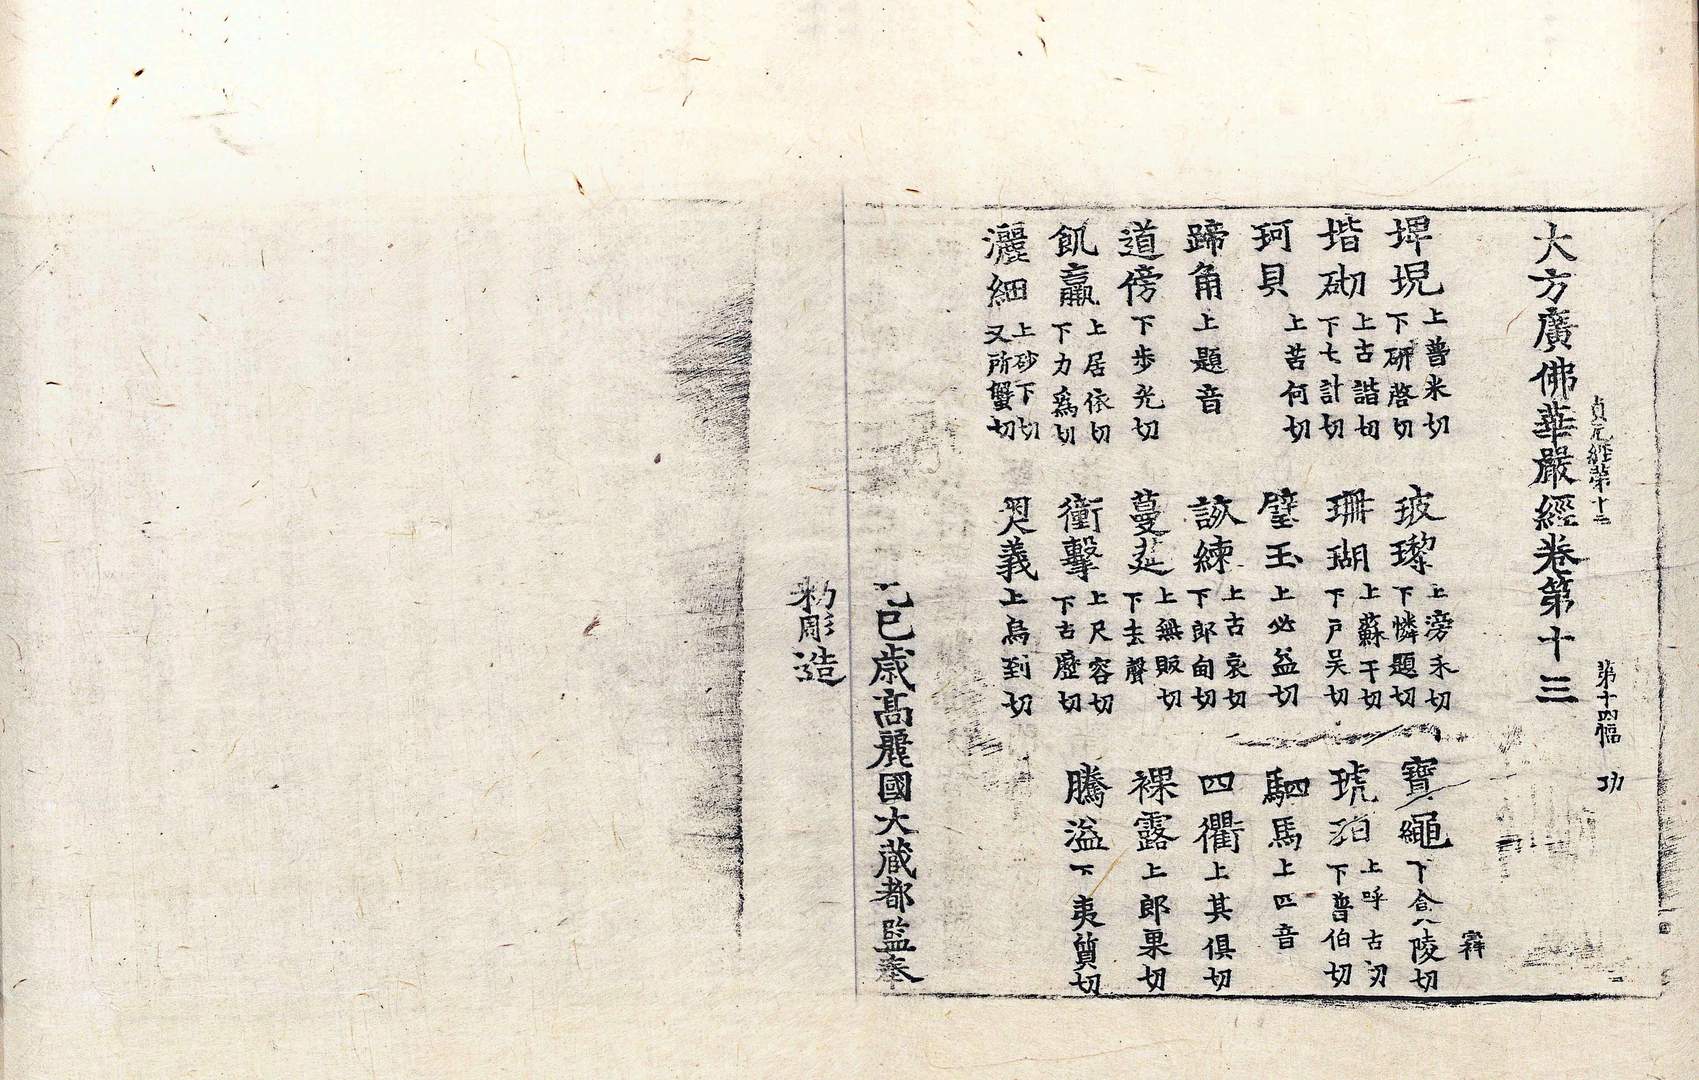 貞元經第十三
第十四幅 功
大方廣佛華嚴經卷第十三
埤堄上普米切下研啓切 玻瓈上滂禾切下憐題切 寶繩下食陵切
堦砌上古諧切下七計切 珊瑚上蘇干切下戶吴切 琥珀上呼古切下普伯切
珂貝上苦何切 璧玉上必益切 駟馬上四音
蹄角上題音 詼練上古哀切下郎甸切 四衢上其俱切
道傍下步光切 蔓莚上無販切下去聲 裸露上郎果切
飢羸上居依切下力爲切 衝擊上尺容切下古歷切 騰溢下夷質切
灑細上砂下切又所蟹切 奥義上烏到切
乙巳歲高麗國大藏都監奉
勑彫造